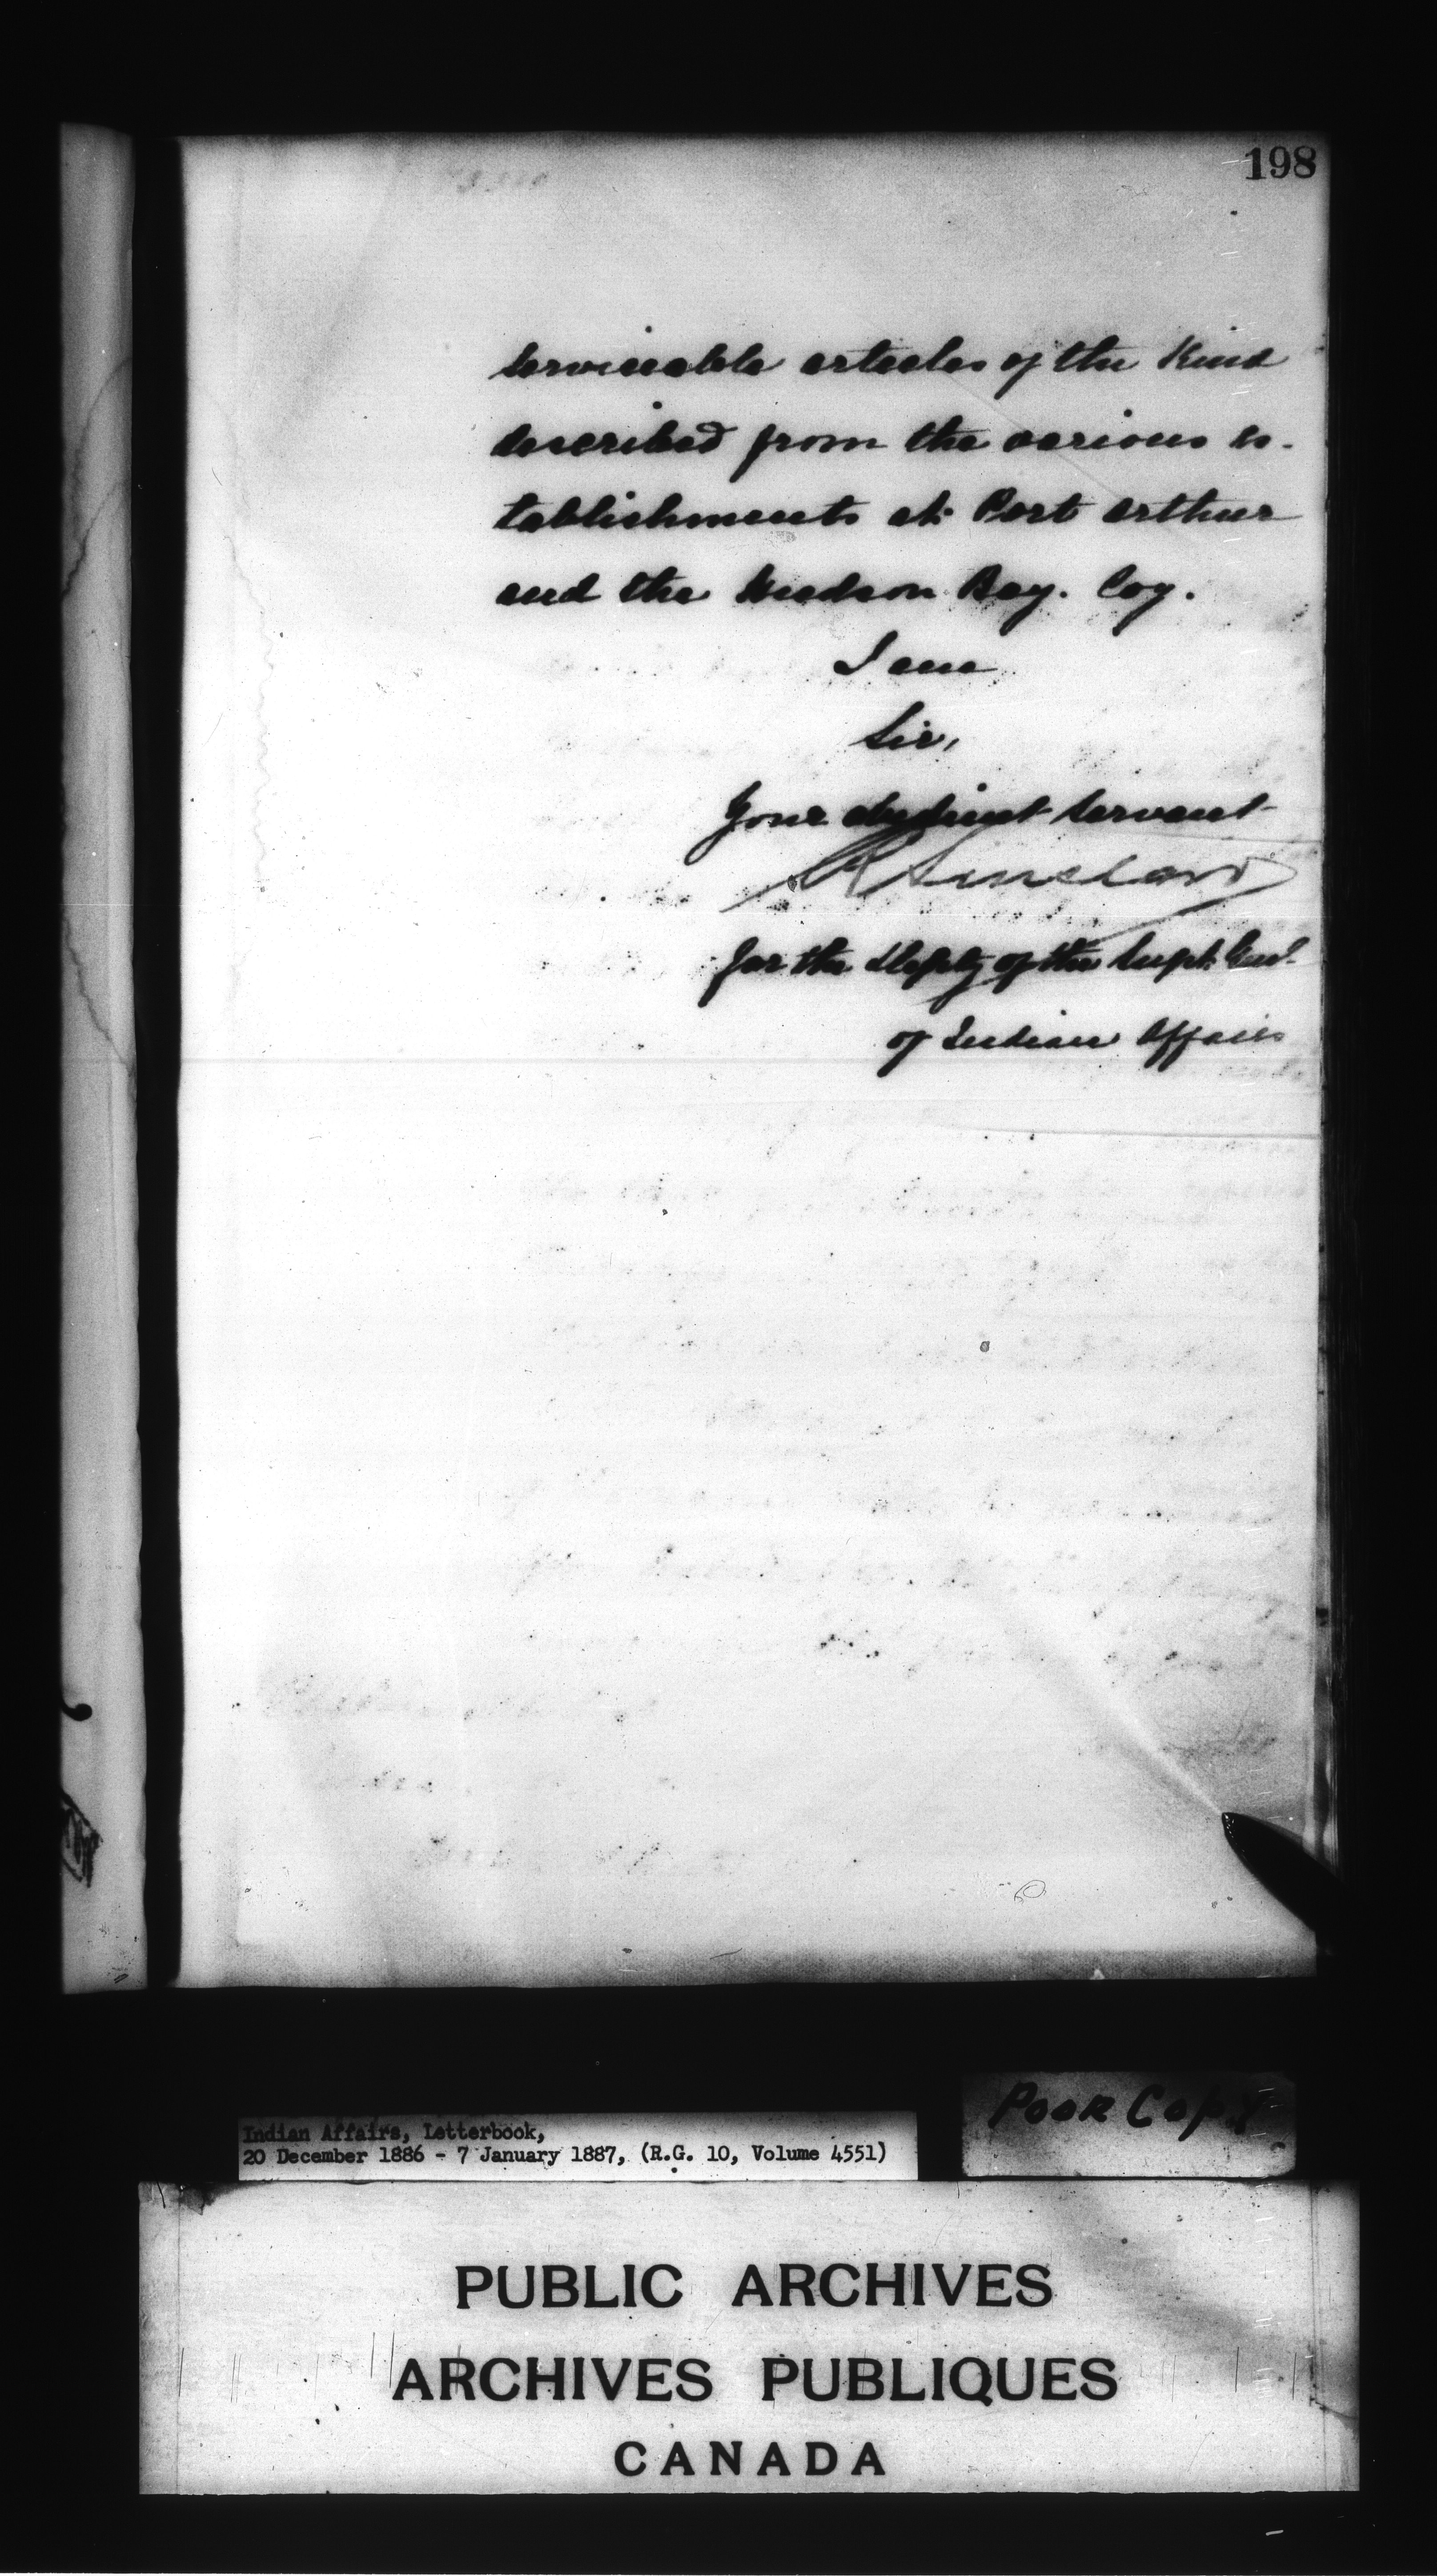 198
serviceable articles of the kind
described from the various es-
tablishments at Port Arthur
and the Hudson Bay. Coy.
I am
Sir,
Your obedient servant
R Sinclair
for the Depty of the Supt. Genl.
of Indian Affairs
Poor Copy
Indian Affairs, Letterbook,
20 December 1886 - 7 January 1887, (R.G. 10, Volume 4551)
PUBLIC ARCHIVES
ARCHIVES PUBLIQUES
CANADA